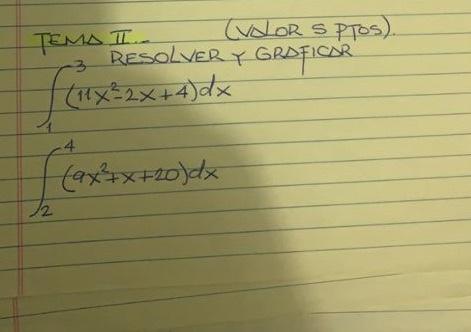 TEMA II.- (VALOR 5 PTOS).
RESOLVER Y GRAFICAR
∫₁³ (11x²-2x+4)dx
∫₂⁴ (9x²+x+20)dx